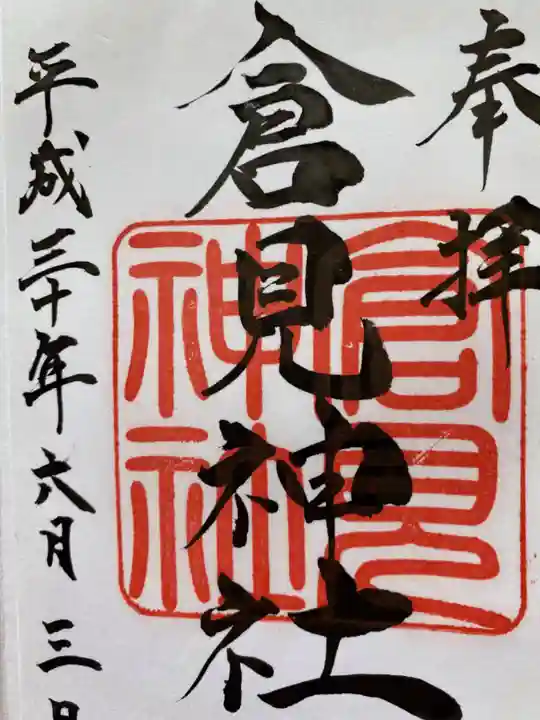 奉拝
倉見神社
倉見神社
平成三十年六月三日